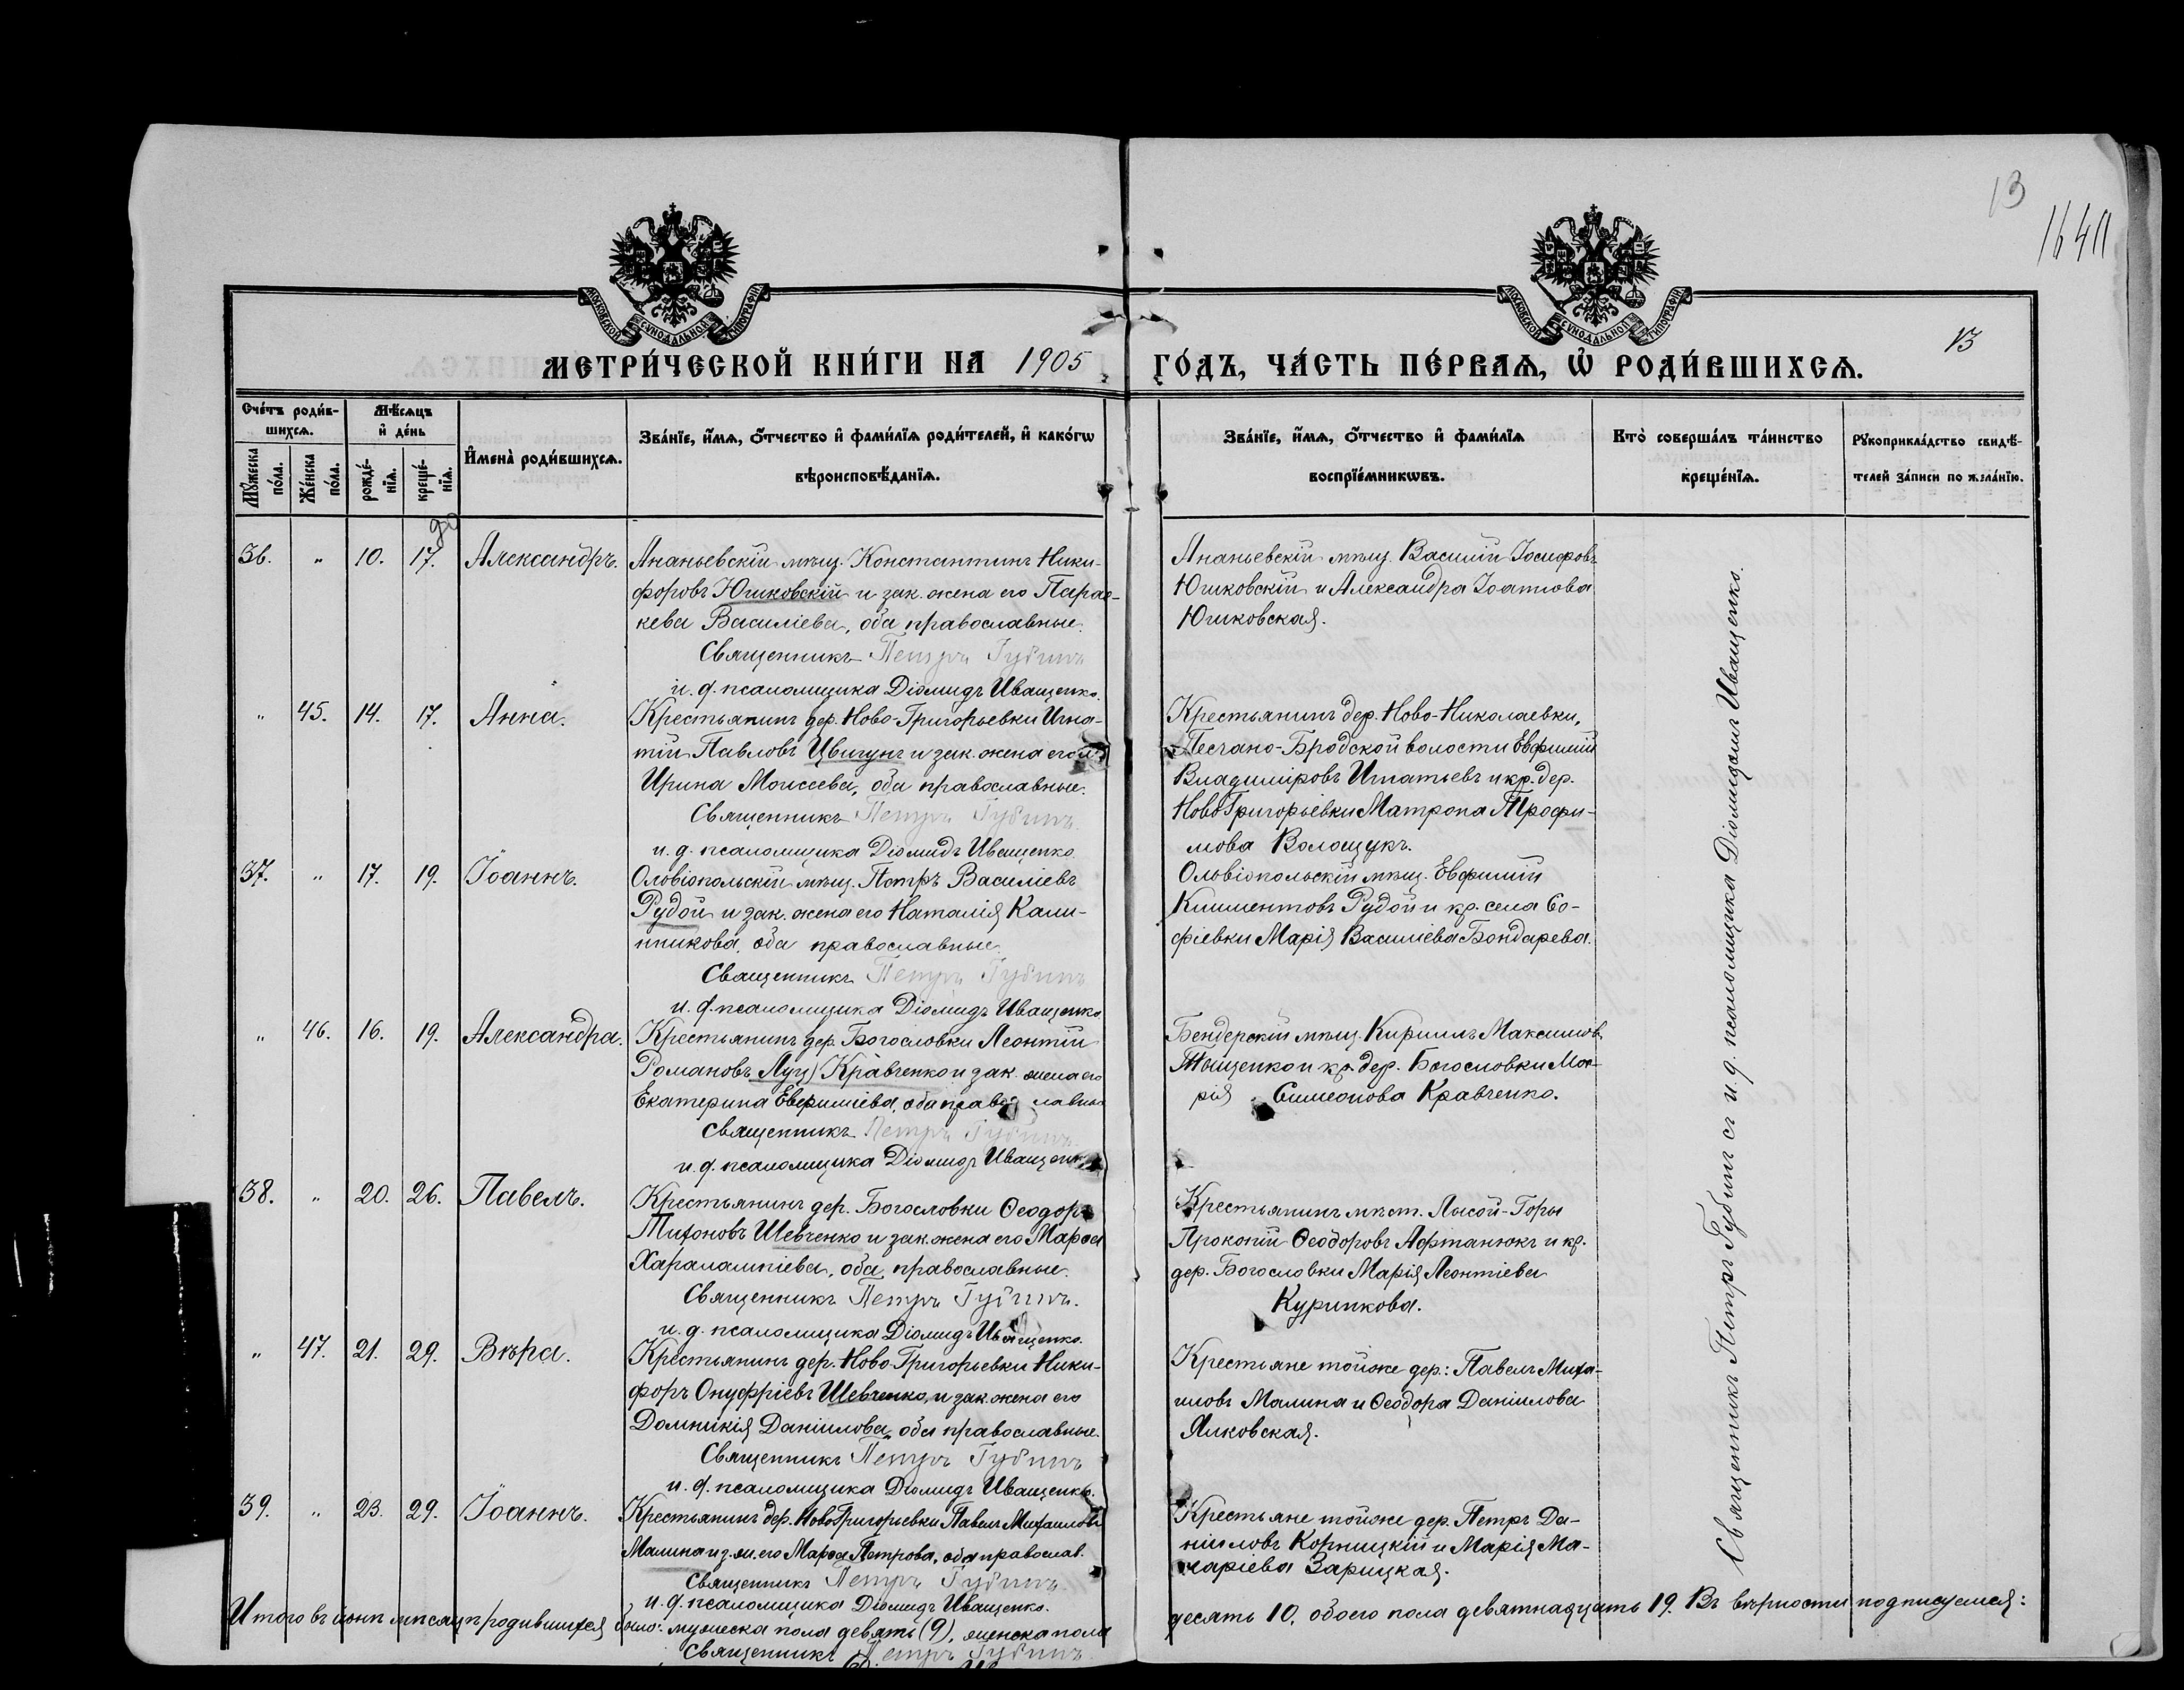 13
1640
МОСКОВСКОЙ СѴНОДАЛЬНОЙ ТИПОГРАФІИ
МОСКОВСКОЙ СѴНОДАЛЬНОЙ ТИПОГРАФІИ
13
МЕТРИ́ЧЕСКОЙ КНИ́ГИ НА 1905 ГО́ДЪ, ЧА́СТЬ ПЕ́РВАѦ, Ѡ РОДИ́ВШИХСѦ.
Сче́тъ роди́вшихсѧ.
Мѣ́сѧцъ и де́нь
Мꙋ́жеска по́ла.
Же́нска по́ла.
рожде́нїѧ.
креще́нїѧ.
И҆мена̀ роди́вшихсѧ.
Зва́нїе, и҆́мѧ, ѻ҆́тчество и҆ фами́лїѧ роди́телей, и҆ како́гѡ
вѣроисповѣ́данїѧ.
Зва́нїе, и҆́мѧ, ѻ҆́тчество и҆ фами́лїѧ
воспрїе́мникѡвъ.
Кто̀ соверша́лъ та́инство
креще́нїѧ.
Рꙋкоприкла́дство свидѣ́-
телей за́писи по жела́нїю.
36. " 10. 17. Александръ.
Ананьевскій мѣщ. Константинъ Ники-
форовъ Юшковскій и зак. жена его Парас-
кева Василіева, оба православные.
Священникъ Петръ Губинъ
и. д. псаломщика Діомидъ Иващенко.
Ананьевскій мѣщ. Василій Іосифовъ
Юшковскій и Александра Іоаннова
Юшковская.
" 45. 14. 17. Анна.
Крестьянинъ дер. Ново-Григорьевки Игна-
тій Павловъ Цвигунъ и зак. жена его
Ирина Моисеева, оба православные.
Священникъ Петръ Губинъ
и. д. псаломщика Діомидъ Иващенко.
Крестьянинъ дер. Ново-Николаевки,
Песчано-Бродской волости Евфимій
Владиміровъ Игнатьевъ и кр. дер.
Ново Григорьевки Матрона Трофи-
мова Волощукъ.
37. " 17. 19. Іоаннъ.
Ольвіопольскій мѣщ. Петръ Василіевъ
Рудой и зак. жена его Наталія Кали-
нникова, оба православные
Священникъ Петръ Губинъ
и. д. псаломщика Діомидъ Иващенко
Ольвіопольскій мѣщ. Евфимій
Климентовъ Рудой и кр. села Со-
фіевки Марія Василіева Бондарева.
" 46. 16. 19. Александра.
Крестьянинъ дер. Богословки Леонтій
Романовъ Луц) Кравченко и зак. жена его
Екатерина Евфиміева, оба православные
Священникъ Петръ Губинъ
и. д. псаломщика Діомидъ Иващенко
Бендерскій мѣщ. Кириллъ Максимов.
Тыщенко и кр. дер. Богословки Ма-
рія Симеонова Кравченко.
38. " 20. 26. Павелъ.
Крестьянинъ дер. Богословки Ѳеодоръ
Тихоновъ Шевченко и зак. жена его Марѳа
Харалампіева, оба православные.
Священникъ Петръ Губинъ.
и. д. псаломщика Діомидъ Иващенко.
Крестьянинъ мѣст. Лысой-Горы
Прокопій Ѳеодоровъ Афтанюкъ и кр.
дер. Богословки Марія Леонтіева
Курипкова.
" 47. 21. 29. Вѣра.
Крестьянинъ дер. Ново Григорьевки Ники-
форъ Онуфріевъ Шевченко, и зак. жена его
Домникія Даніилова, оба православные.
Священникъ Петръ Губинъ
и. д. псаломщика Діомидъ Иващенко.
Крестьяне тойже дер.: Павелъ Миха-
иловъ Малина и Ѳеодора Даніилова
Ялковская.
39. " 23. 29. Іоаннъ.
Крестьянинъ дер. Ново Григорьевки Павелъ Михаиловъ
Малина и з. ж. его Марѳа Петрова, оба православ.
Священникъ Петръ Губинъ
и. д. псаломщика Діомидъ Иващенко.
Крестьяне тойже дер. Петръ Да-
ніиловъ Корницкій и Марія Ма-
каріева Зарицкая.
Священникъ Петръ Губинъ съ и. д. псаломщика Діомидомъ Иващенко.
Итого въ іюнѣ мѣсяцѣ родившихся было: мужеска пола девять (9), женска пола десять 10, обоего пола девятнадцать 19. Въ вѣрности подписуемся:
Священникъ Петръ Губинъ